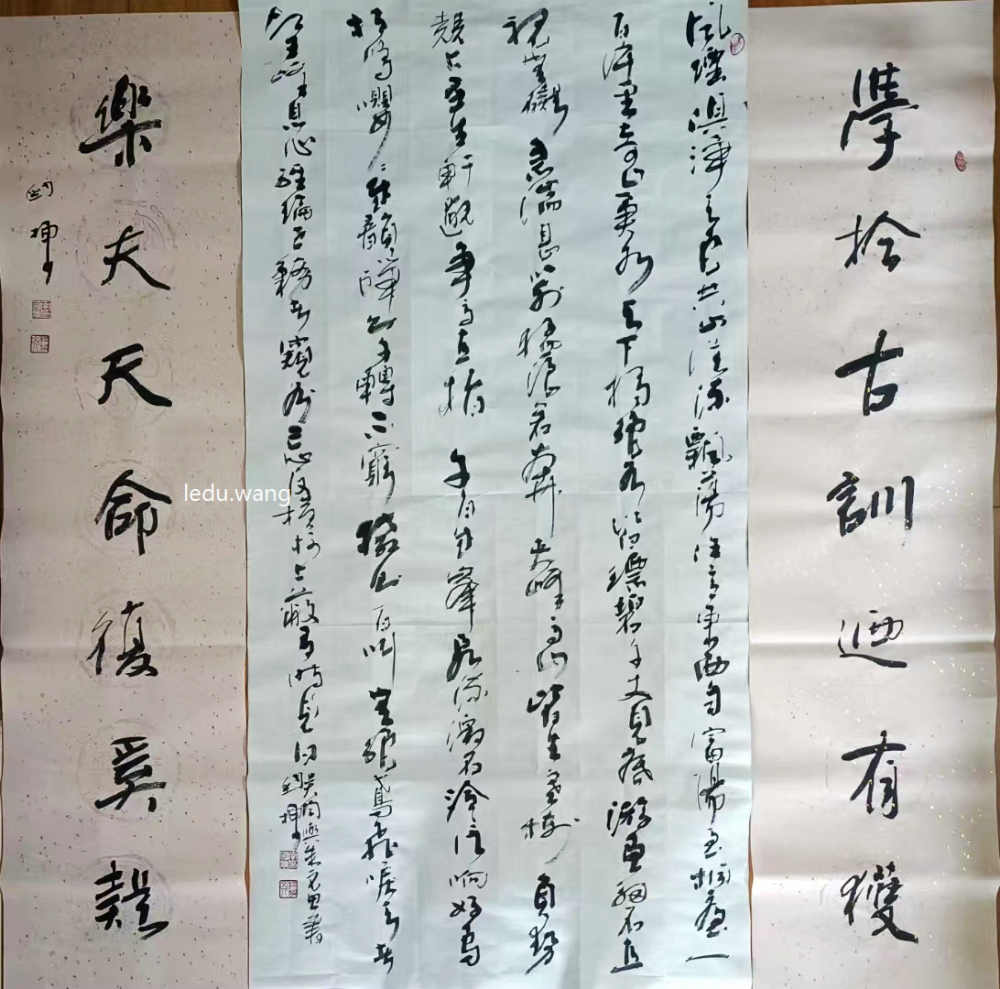 學於古訓迺有獲
風煙俱淨天山共色從流飄蕩任意東西自富陽至桐廬一
百許里奇山異水天下獨絕水皆縹碧千丈見底游魚細石直
視無礙急湍甚箭猛浪若奔夾峰高山皆生寒樹負勢
競上互相軒邈爭高直指千百成峰泉水激石泠泠作響好鳥
相鳴嚶嚶成韻蟬則千轉不窮猿則百叫無絕鳶飛唳天者
望峰息心經綸世務者窺谷忘反橫柯上蔽有時見日吳均與朱元思書
樂夫天命復奚疑
ledu.wang